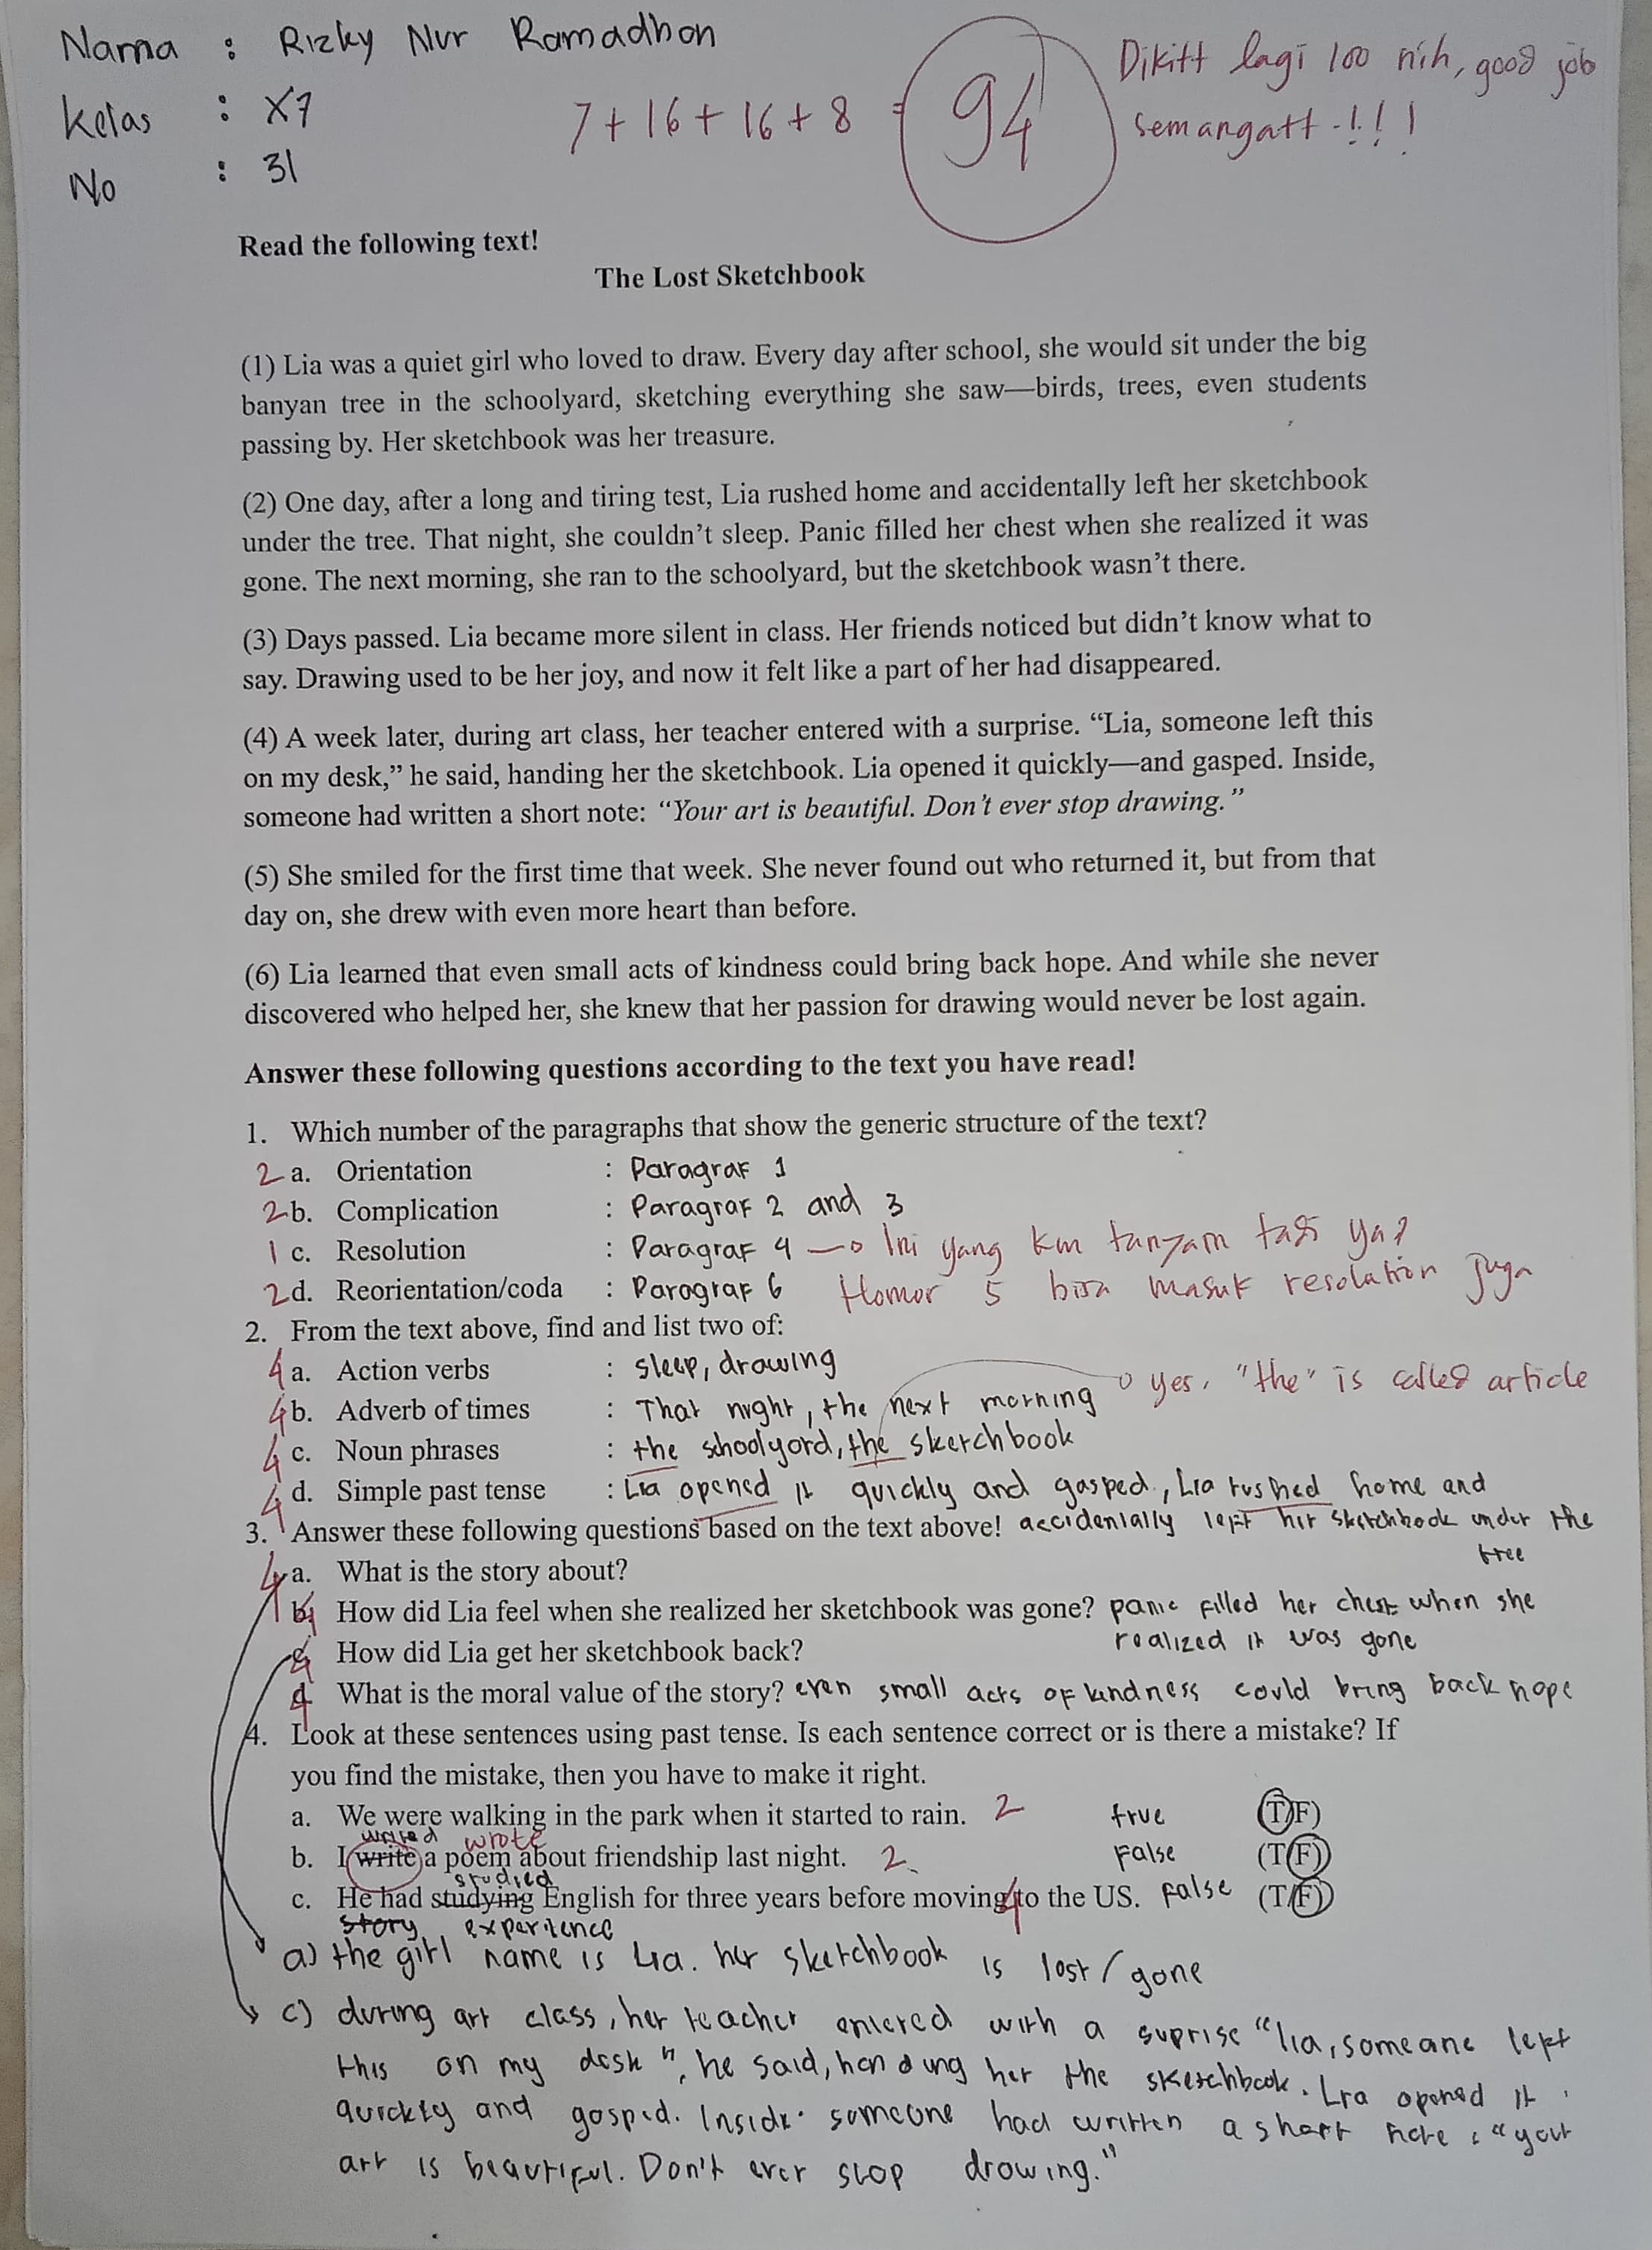 Nama : Rizky Nur Ramadhan
Kelas : X7
No : 31
7 + 16 + 16 + 8 = 94
Dikitt lagi 100 nih, good job
semangatt -!!!
Read the following text!
The Lost Sketchbook
(1) Lia was a quiet girl who loved to draw. Every day after school, she would sit under the big
banyan tree in the schoolyard, sketching everything she saw—birds, trees, even students
passing by. Her sketchbook was her treasure.
(2) One day, after a long and tiring test, Lia rushed home and accidentally left her sketchbook
under the tree. That night, she couldn't sleep. Panic filled her chest when she realized it was
gone. The next morning, she ran to the schoolyard, but the sketchbook wasn't there.
(3) Days passed. Lia became more silent in class. Her friends noticed but didn't know what to
say. Drawing used to be her joy, and now it felt like a part of her had disappeared.
(4) A week later, during art class, her teacher entered with a surprise. "Lia, someone left this
on my desk," he said, handing her the sketchbook. Lia opened it quickly—and gasped. Inside,
someone had written a short note: "Your art is beautiful. Don't ever stop drawing."
(5) She smiled for the first time that week. She never found out who returned it, but from that
day on, she drew with even more heart than before.
(6) Lia learned that even small acts of kindness could bring back hope. And while she never
discovered who helped her, she knew that her passion for drawing would never be lost again.
Answer these following questions according to the text you have read!
1. Which number of the paragraphs that show the generic structure of the text?
2 a. Orientation : Paragraf 1
2 b. Complication : Paragraf 2 and 3
1 c. Resolution : Paragraf 4 → Ini yang km tanyain tadi ya?
2 d. Reorientation/coda : Paragraf 6 Nomor 5 bisa masuk resolution juga
2. From the text above, find and list two of:
4 a. Action verbs : sleep, drawing
4 b. Adverb of times : That night, the next morning yes, "the" is called article
4 c. Noun phrases : the schoolyard, the sketchbook
4 d. Simple past tense : Lia opened it quickly and gasped, Lia rushed home and
3. Answer these following questions based on the text above! accidentally left her sketchbook under the
tree
4 a. What is the story about?
4 b. How did Lia feel when she realized her sketchbook was gone? panic filled her chest when she
realized it was gone
4 c. How did Lia get her sketchbook back?
4 d. What is the moral value of the story? even small acts of kindness could bring back hope
4. Look at these sentences using past tense. Is each sentence correct or is there a mistake? If
you find the mistake, then you have to make it right.
a. We were walking in the park when it started to rain. 2 true (T/F)
writed wrote
b. I write a poem about friendship last night. 2 False (T/F)
studied
c. He had studying English for three years before moving to the US. 4 False (T/F)
story experience
a) the girl name is Lia. her sketchbook is lost / gone
c) during art class, her teacher entered with a suprise "lia, someone left
this on my desk", he said, handing her the sketchbook. Lia opened it
quickly and gasped. Inside. someone had written a short note : "your
art is beautiful. Don't ever stop drawing."